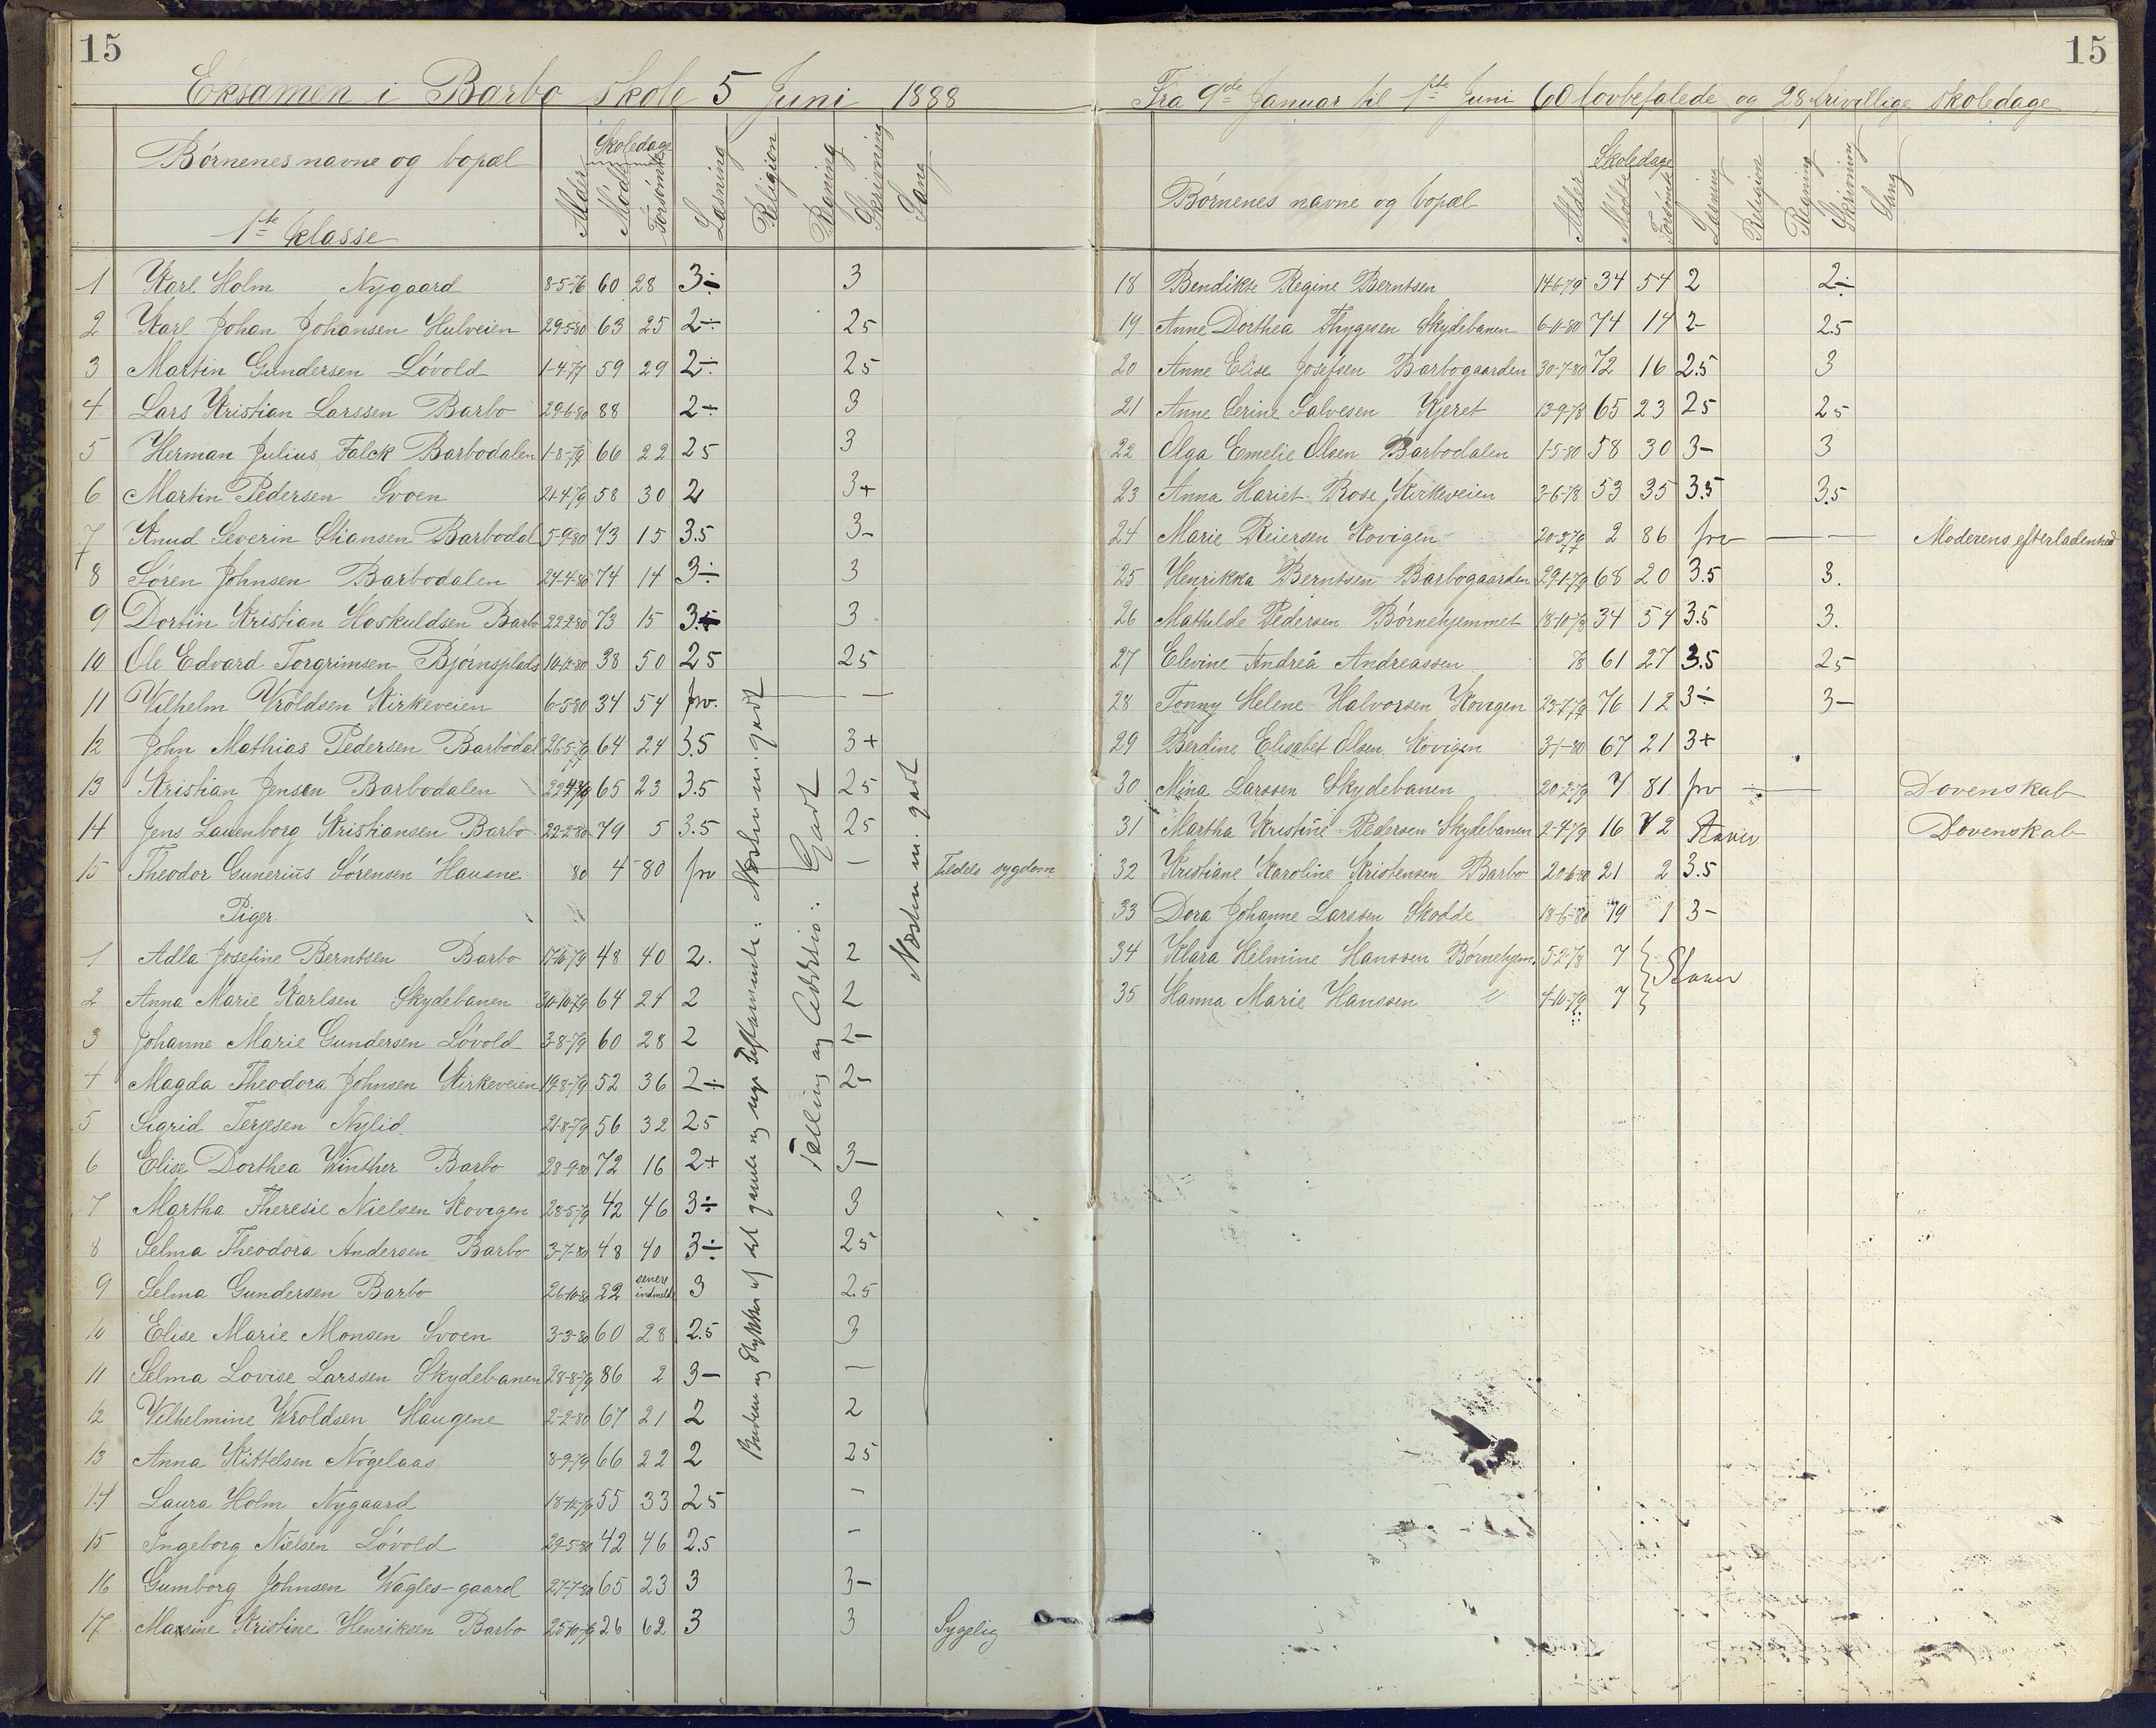 15
Eksamen i Barbo skole 5 Juni 1888
Børnenes navne og bopæl
1ste klasse
Alder
Skoledage
Mødte
Forsømte
Læsning
Religion
Regning
Skrivning
Sang
1 Karl Holm Nygaard 8-5-76 60 28 3÷ 3
2 Karl Johan Johansen Hulveien 29-5-80 63 25 2÷ 2 5
3 Martin Gundersen Løvold 1-4-79 59 29 2÷ 2 5
4 Lars Kristian Larssen Barbo 29-6-80 88 2÷ 3
5 Herman Julius Falck Barbodalen 1-8-79 66 22 2 5 3
6 Martin Pedersen Svoen 21-4-79 58 30 2 3+
7 Knud Severin Stiansen Barbodal 5-9-80 73 15 3.5 3-
8 Søren Johnsen Barbodalen 24-4-80 74 14 3÷ 3
9 Dortin Kristian Hoskuldsen Barbo 22-2-80 73 15 3 3
10 Ole Edvard Torgrimsen Bjørnsplads 10-12-80 38 50 2 5 2 5
11 Vilhelm Wroldsen Kirkeveien 6-5-80 34 54 prv. — —
12 John Mathias Pedersen Barbodal 26-5-79 64 24 3.5 3+
13 Kristian Jensen Barbodalen 65 23 3.5 2 5
14 Jens Lauenborg Kristiansen Barbo 22-2-80 79 5 3.5 2 5
15 Theodor Gunerius Sørensen Hauene 80 4 80 prv — tildels sygdom
Piger
1 Adla Josefine Berntsen Barbo 17-10-79 48 40 2. 2
2 Anna Marie Karlsen Skydebanen 30-10-79 64 24 2 2
3 Johanne Marie Gundersen Løvold 3-8-79 60 28 2 2-
4 Magda Theodora Johnsen Kirkeveien 19-8-79 52 36 2÷ 2-
5 Sigrid Terjesen Nylid 21-8-79 56 32 2.5
6 Elise Dorthea Winther Barbo 28-9-80 72 16 2+ 3-
7 Martha Theresie Nielsen Kovigen 28-5-79 42 46 3÷ 3
8 Selma Theodora Andersen Barbo 3-7-80 48 40 3÷ 2 5
9 Selma Gundersen Barbo 26-10-80 22 senere indmeldt 3 2.5
10 Elise Marie Monsen Svoen 3-3-80 60 28 2.5 3
11 Selma Lovise Larssen Skydebanen 28-8-79 86 2 3- —
12 Vilhelmine Wroldsen Haugene 2-2-80 67 21 2 2
13 Anna Kittelsen Nøgelaas 8-9-79 66 22 2 2 5
14 Laura Holm Nygaard 18-12-79 55 33 2 5 -
15 Ingeborg Nielsen Løvold 29-5-80 42 46 2.5 -
16 Gumborg Johnsen Wagles-gaard 27-7-80 65 23 3 3-
17 Maxsine Kristine Henriksen Barbo 25-10-79 26 62 3 3 Sygelig
og Stykker af det gamle og nye Testamente: Næsten m. godt
Tælling og Addisio: Godt
Næsten m. godt
15
Fra 9de Januar til 1ste Juni 60 lovbefalede og 28 frivillige skoledage
Børnenes navne og bopæl
Alder
Skoledage
Mødte
Forsømte
Læsning
Religion
Regning
Skrivning
Sang
18 Bendikte Regine Berntsen 14-6-79 34 54 2 2÷
19 Anne Dorthea Thygesen Skydebanen 6-11-80 74 14 2- 2.5
20 Anne Elise Josefsen Barbogaarden 30-7-80 72 16 2.5 3
21 Anne Serine Salvesen Kjeret 13-9-78 65 23 2 5 2 5
22 Olga Emelie Olsen Barbodalen 1-5-80 58 30 3- 3
23 Anna Hariet Rose, Kirkeveien 3-6-78 53 35 3.5 3.5
24 Marie Reiersen Kovigen 20-3-79 2 86 prv — — — Moderens efterladenhed
25 Henrikka Berntsen Barbogaarden 29-1-79 68 20 3.5 3.
26 Mathilde Pedersen Børnehjemmet 18-10-78 34 54 3.5 3.
27 Elevine Andrea Andreassen 78 61 27 3.5 2 5
28 Tonny Helene Halvorsen Kovigen 23-7-79 76 12 3÷ 3-
29 Berdine Elisabet Olsen Kovigen 3-1-80 67 21 3+
30 Mina Larssen Skydebanen 20-2-79 7 81 prv — Dovenskab
31 Martha Kristine Pedersen Skydebanen 2-4-79 16 72 Staver Dovenskab
32 Kristiane Karoline Kristensen Barbo 20-6-80 21 2 3.5
33 Dora Johanne Larssen Skodde 18-6-80 79 1 3-
34 Klara Hilmine Hanssen Børnehjem. 5-2-78 7 Staver
35 Hanna Marie Hanssen " 4-10-79 7